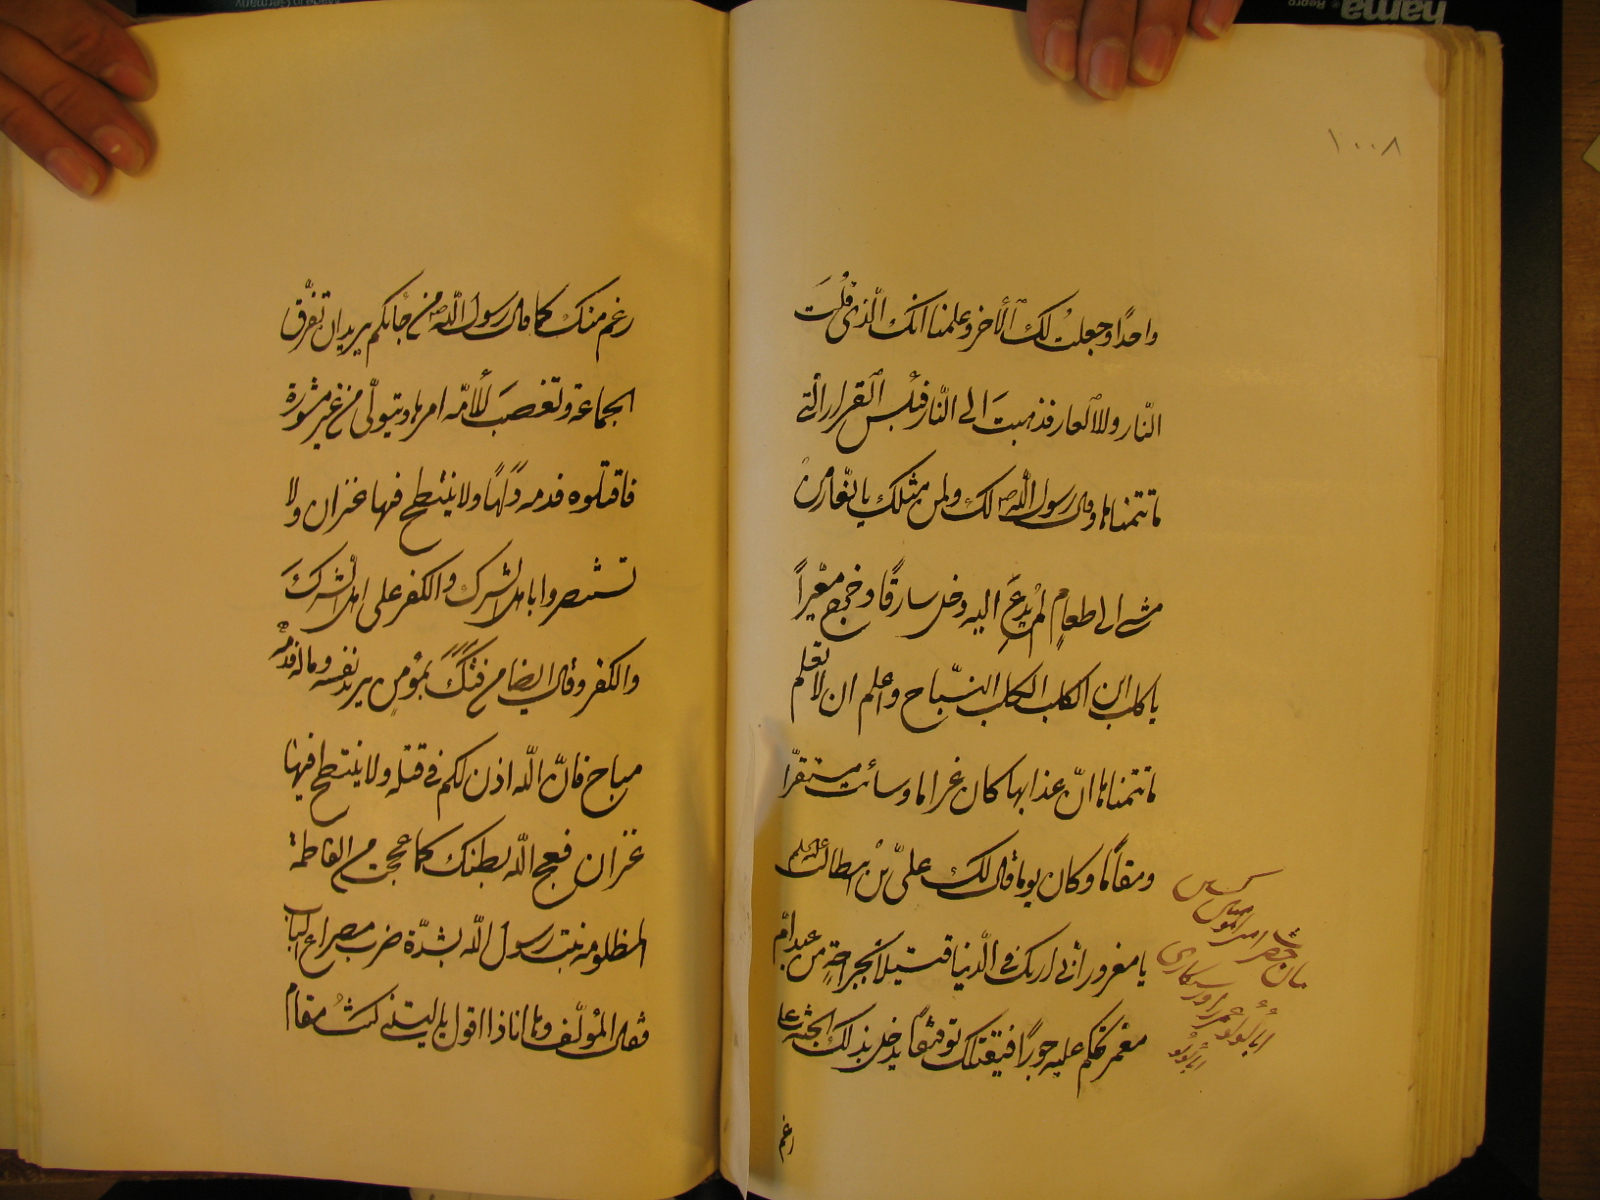 ١٠٠٨
واحدًا وجعلت لك الآخر وعلمنا انك الّذي قُلتَ
النّار ولا العار فذهبتَ الى النّار فبئس القرار الّتي
ما تتمناها وقال رسول اللّه ص لك ولمن مثلك يا
مشى الى طعامٍ لم يُدعَ اليه دخل سارقًا وخرج مغيراً
يا كلب ابن الكلب الكلب النبّاح واعلم ان لا تعلم
ما تتمناها انّ عذابها كان غراما وسائت مستقرّا
ومقامًا وكان يوما قال لك عليّ بن ابيطالب عليه السلم
يا مغرور انّي اريك في الدّنيا قتيلا بجراحةٍ من عبد امّ
معمر تحكم عليه جورًا فيقتلك توفيقًا يدخل بذلك الجنّة على
رغم
رغم منك كما قال رسول اللّه ص من جائكم يريد ان تفرّق
الجماعة وتغصب للأمّه امرها ويتولّى من غير مشورة
فاقتلوه فدمه ولا ينتطح فيها عنزان ولا
تستنصروا باهل الشرك والكفر على اهل الشرك
والكفر وقال ايضا من فتك بمؤمنٍ يريد نفسه وماله فدمه
مباح فانّ اللّه اذن لكم في قتله ولا ينتطح فيها
عنزان فبعج اللّه بطنك كما عجن من الفاطمة
المظلومة بنت رسول اللّه بشدّة ضرب مصراع الباب
فقال المؤلّف وها انا ذا اقول يا ليتني كنتُ مقام